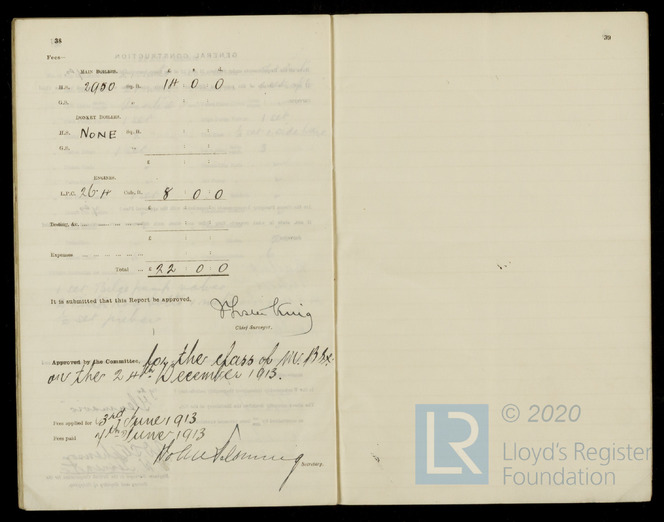 38
Fees—
MAIN BOILERS. £ s. d.
H.S. 2950 Sq. ft. 14 : 0 0
G.S. "
DONKEY BOILERS.
H.S. NONE Sq. ft.
G.S. "
£
ENGINES.
L.P.C. 26.4 Cub. ft. 8 : 0 0
£
Testing, &c. ...
£
Expenses ...
Total ... £ 22 : 0 0
It is submitted that this Report be approved,
King
Chief Surveyor.
Approved by the Committee, for the class of M.B.S.
on the 24th December 1913.
Fees applied for 3rd June 1913
Fees paid 4th June 1913
Secretary.
39
LR
© 2020
Lloyd's Register
Foundation